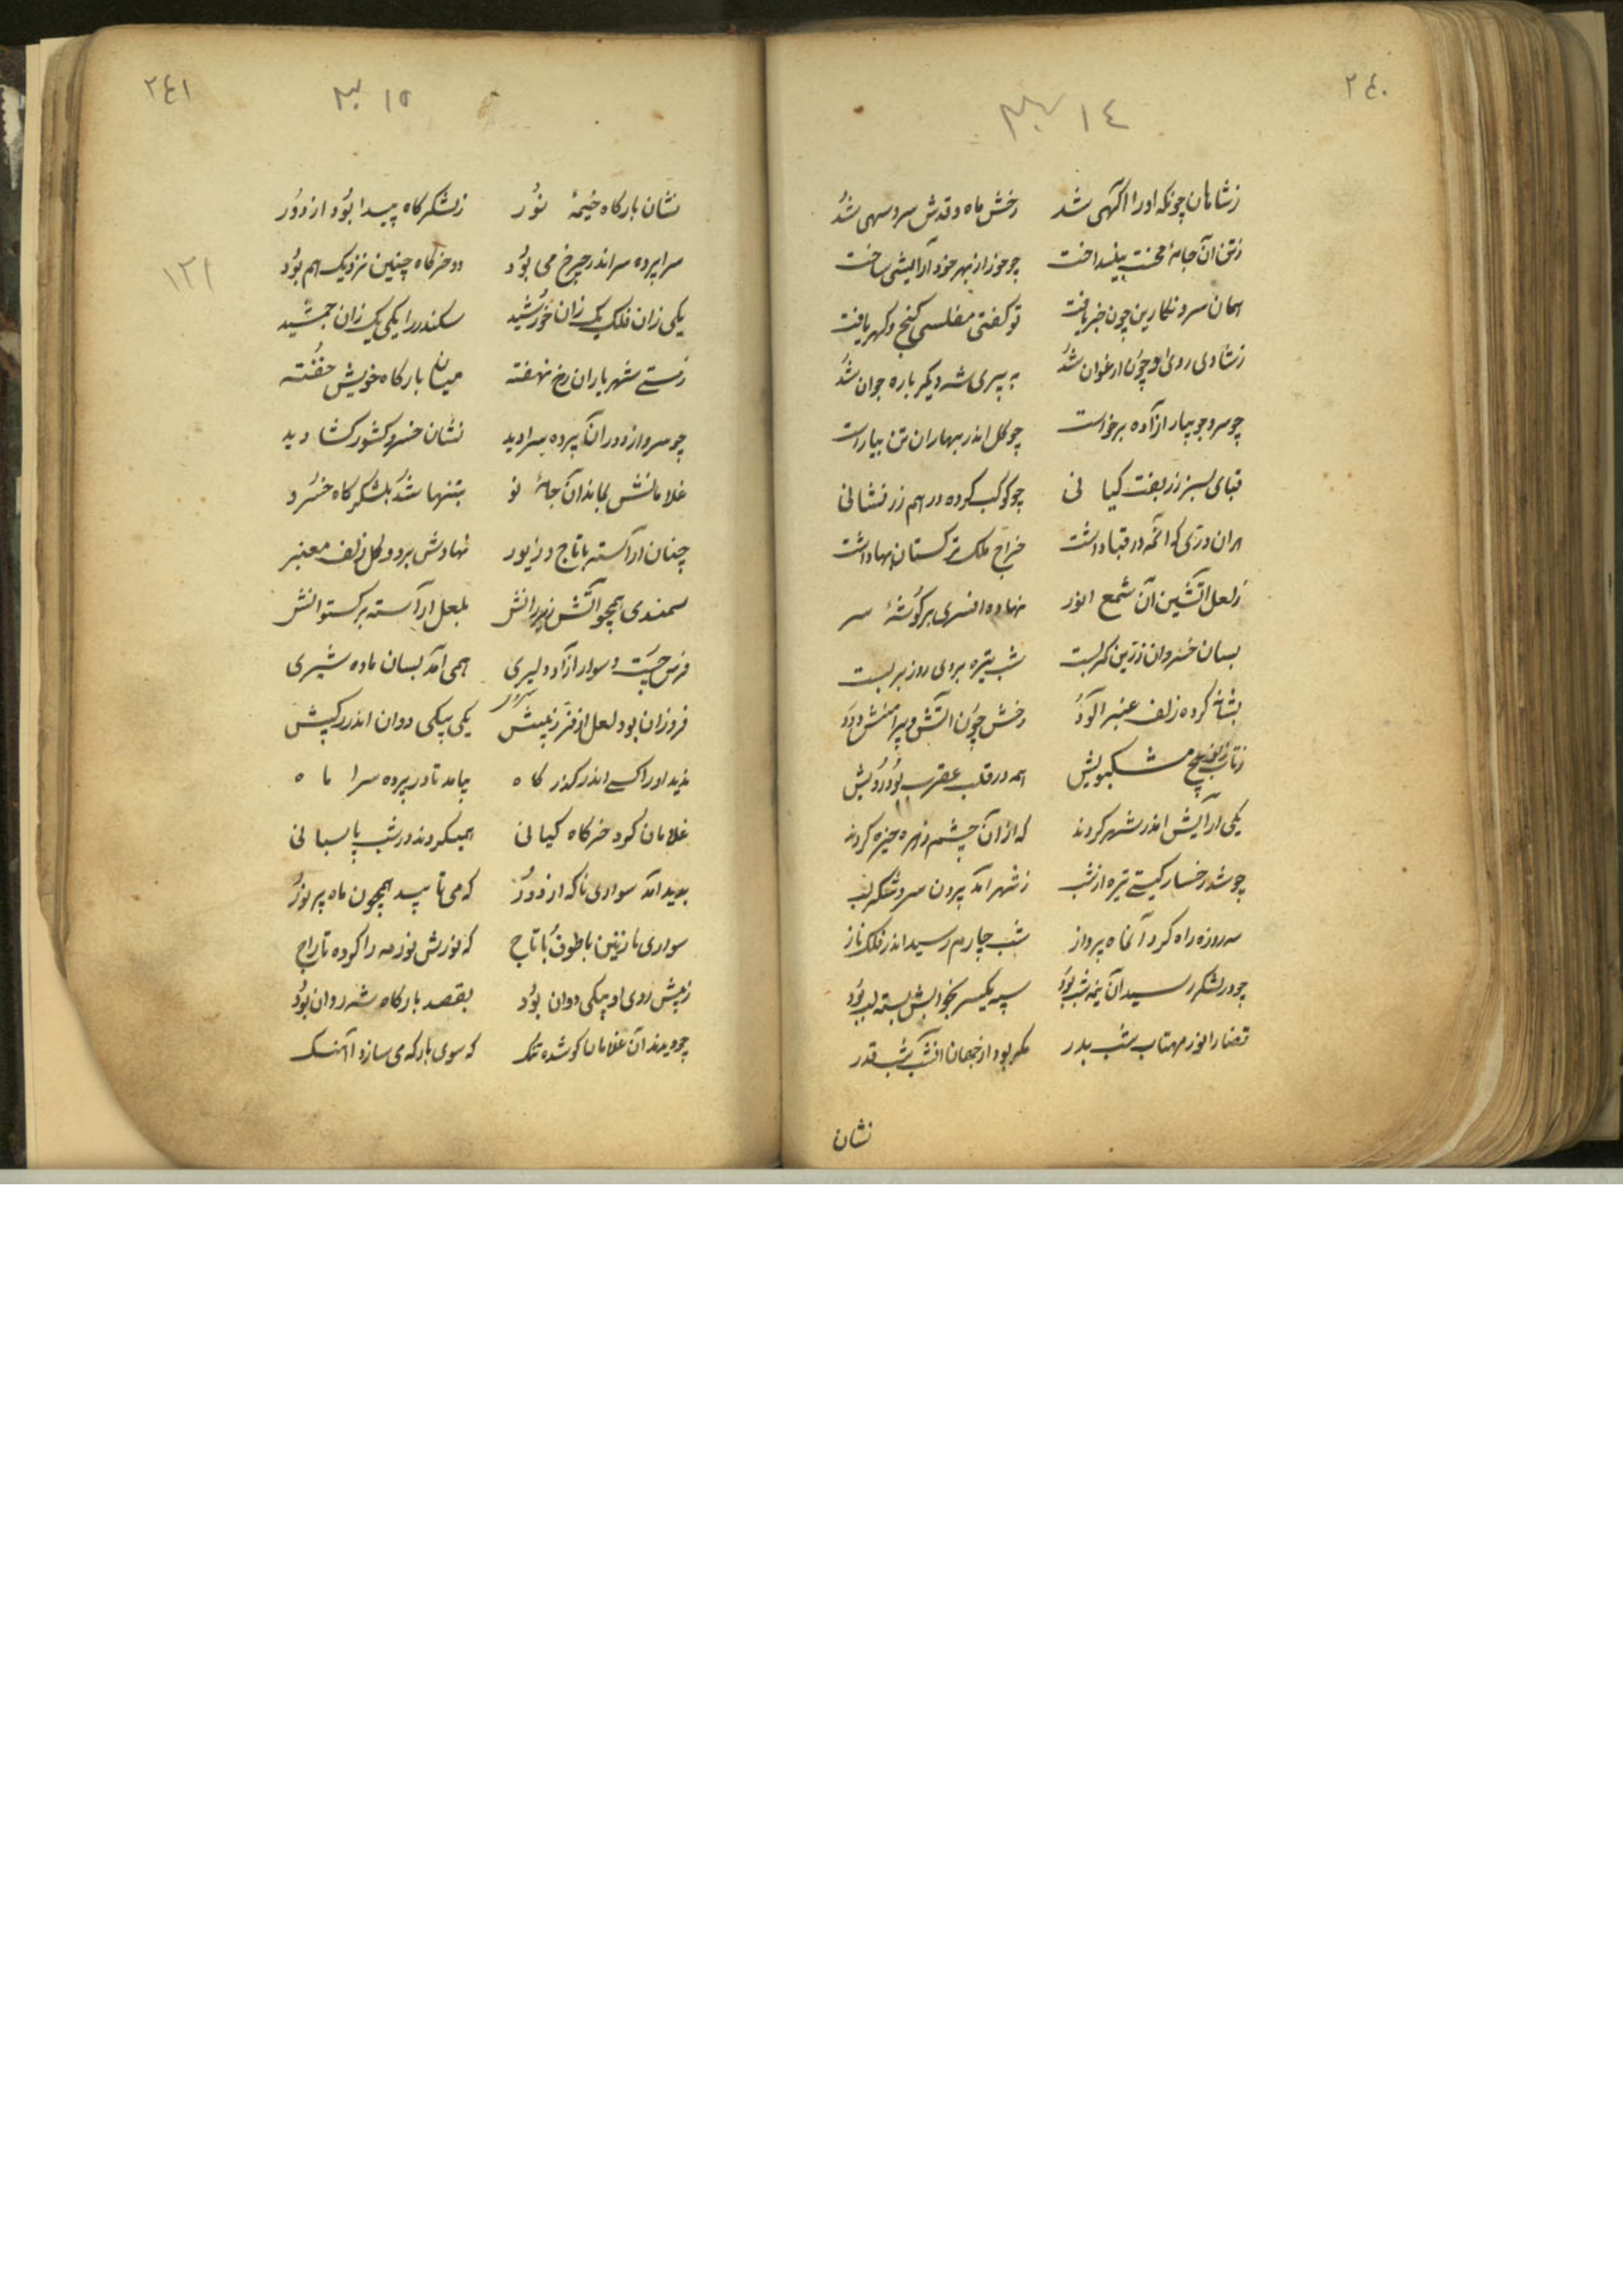 ٢٤٠
١٤
زشاهان چونکه او را آکهی شد رخش ماه و قدش سرو سهی شد
زتن آن جامهٔ محنت بینداخت چو حور از بهر خود آرایشی ساخت
همان سرو نکارین چون خبر یافت تو کفتی مفلسی کنج و کهر یافت
زشادی روی او چون ارغوان شد به پیری شد دیکر باره جوان شد
چو سرو جویبار آزاده برخاست چو کل اندر بهاران تن بیاراست
قبای سبز زربفت کیانی چو کوکب کرده در هم زرفشانی
هران دری که آنمه در قبا داشت خراج ملک ترکستان بها داشت
زلعل آتشین آن شمع انور نهاده افسری بر کوشهٔ سر
بسان خسروان زرین کمر بست شب تیره بروی روز بر بست
بشانه کرده زلف عنبرآلود رخش چون آتش و پیرامنش دود
زتاب مشکبویش همه در قلب عقرب بود رویش
یکی آرایش اندر شهر کردند که از آن چشم زهره خیره کردند
چو شد رخسار کیتی تیره از شب ز شهر آمد برون سرو شکرلب
سه روزه راه کرد آنماه پرواز شب چارم رسید اندر فلک ناز
چو در لشکر رسید آن نیمه شب بود سپه یکسر بخوابش بسته لب بود
قضا را نور مهتاب شب بدر مکر بود از جهان آنشب شب قدر
نشان
٢٤١
١٥
١٢١
نشان بارکاه خیمهٔ نور زلشکرکاه پیدا بود از دور
سراپرده سر اندر چرخ می بود دو خرکاه چنین نزدیک هم بود
یکی زان فلک یک زان خورشید سکندر را یکی یک زان جمشید
زمستی شهریاران رخ نهفته میان بارکاه خویش خفته
چو سرو از دور آن پرده سرا دید نشان خسرو کشورکشا دید
غلامانش بماند آن جامهٔ نو بتنها شد بلشکرکاه خسرو
چنان آراسته با تاج و زیور نهادش بر دو کل زلف معنبر
سمندی همچو آتش زیر رانش بلعل آراسته برکستوانش
فرس چست و سوار آزاد و لیری همی آمد بسان ماده شیری
فروزان بود لعل از فر زینش یکی پیکی دوان اندر رکیبش
ندید او را کسی اندر کذرکاه بیامد تا در پرده سرا ماه
غلامان کرد خرکاه کیانی همیکردند در شب پاسبانی
پدید آمد سواری ناکه از دور که می تابید همچون ماه پر نور
سواری نازنین با طوق با تاج که نورش نور مه را کرده تاراج
زپیش روی او پیکی دوان بود بقصد بارکاه شه روان بود
چو دیدند آن غلامان کو شده تنک که سوی بارکه می سازد آهنک